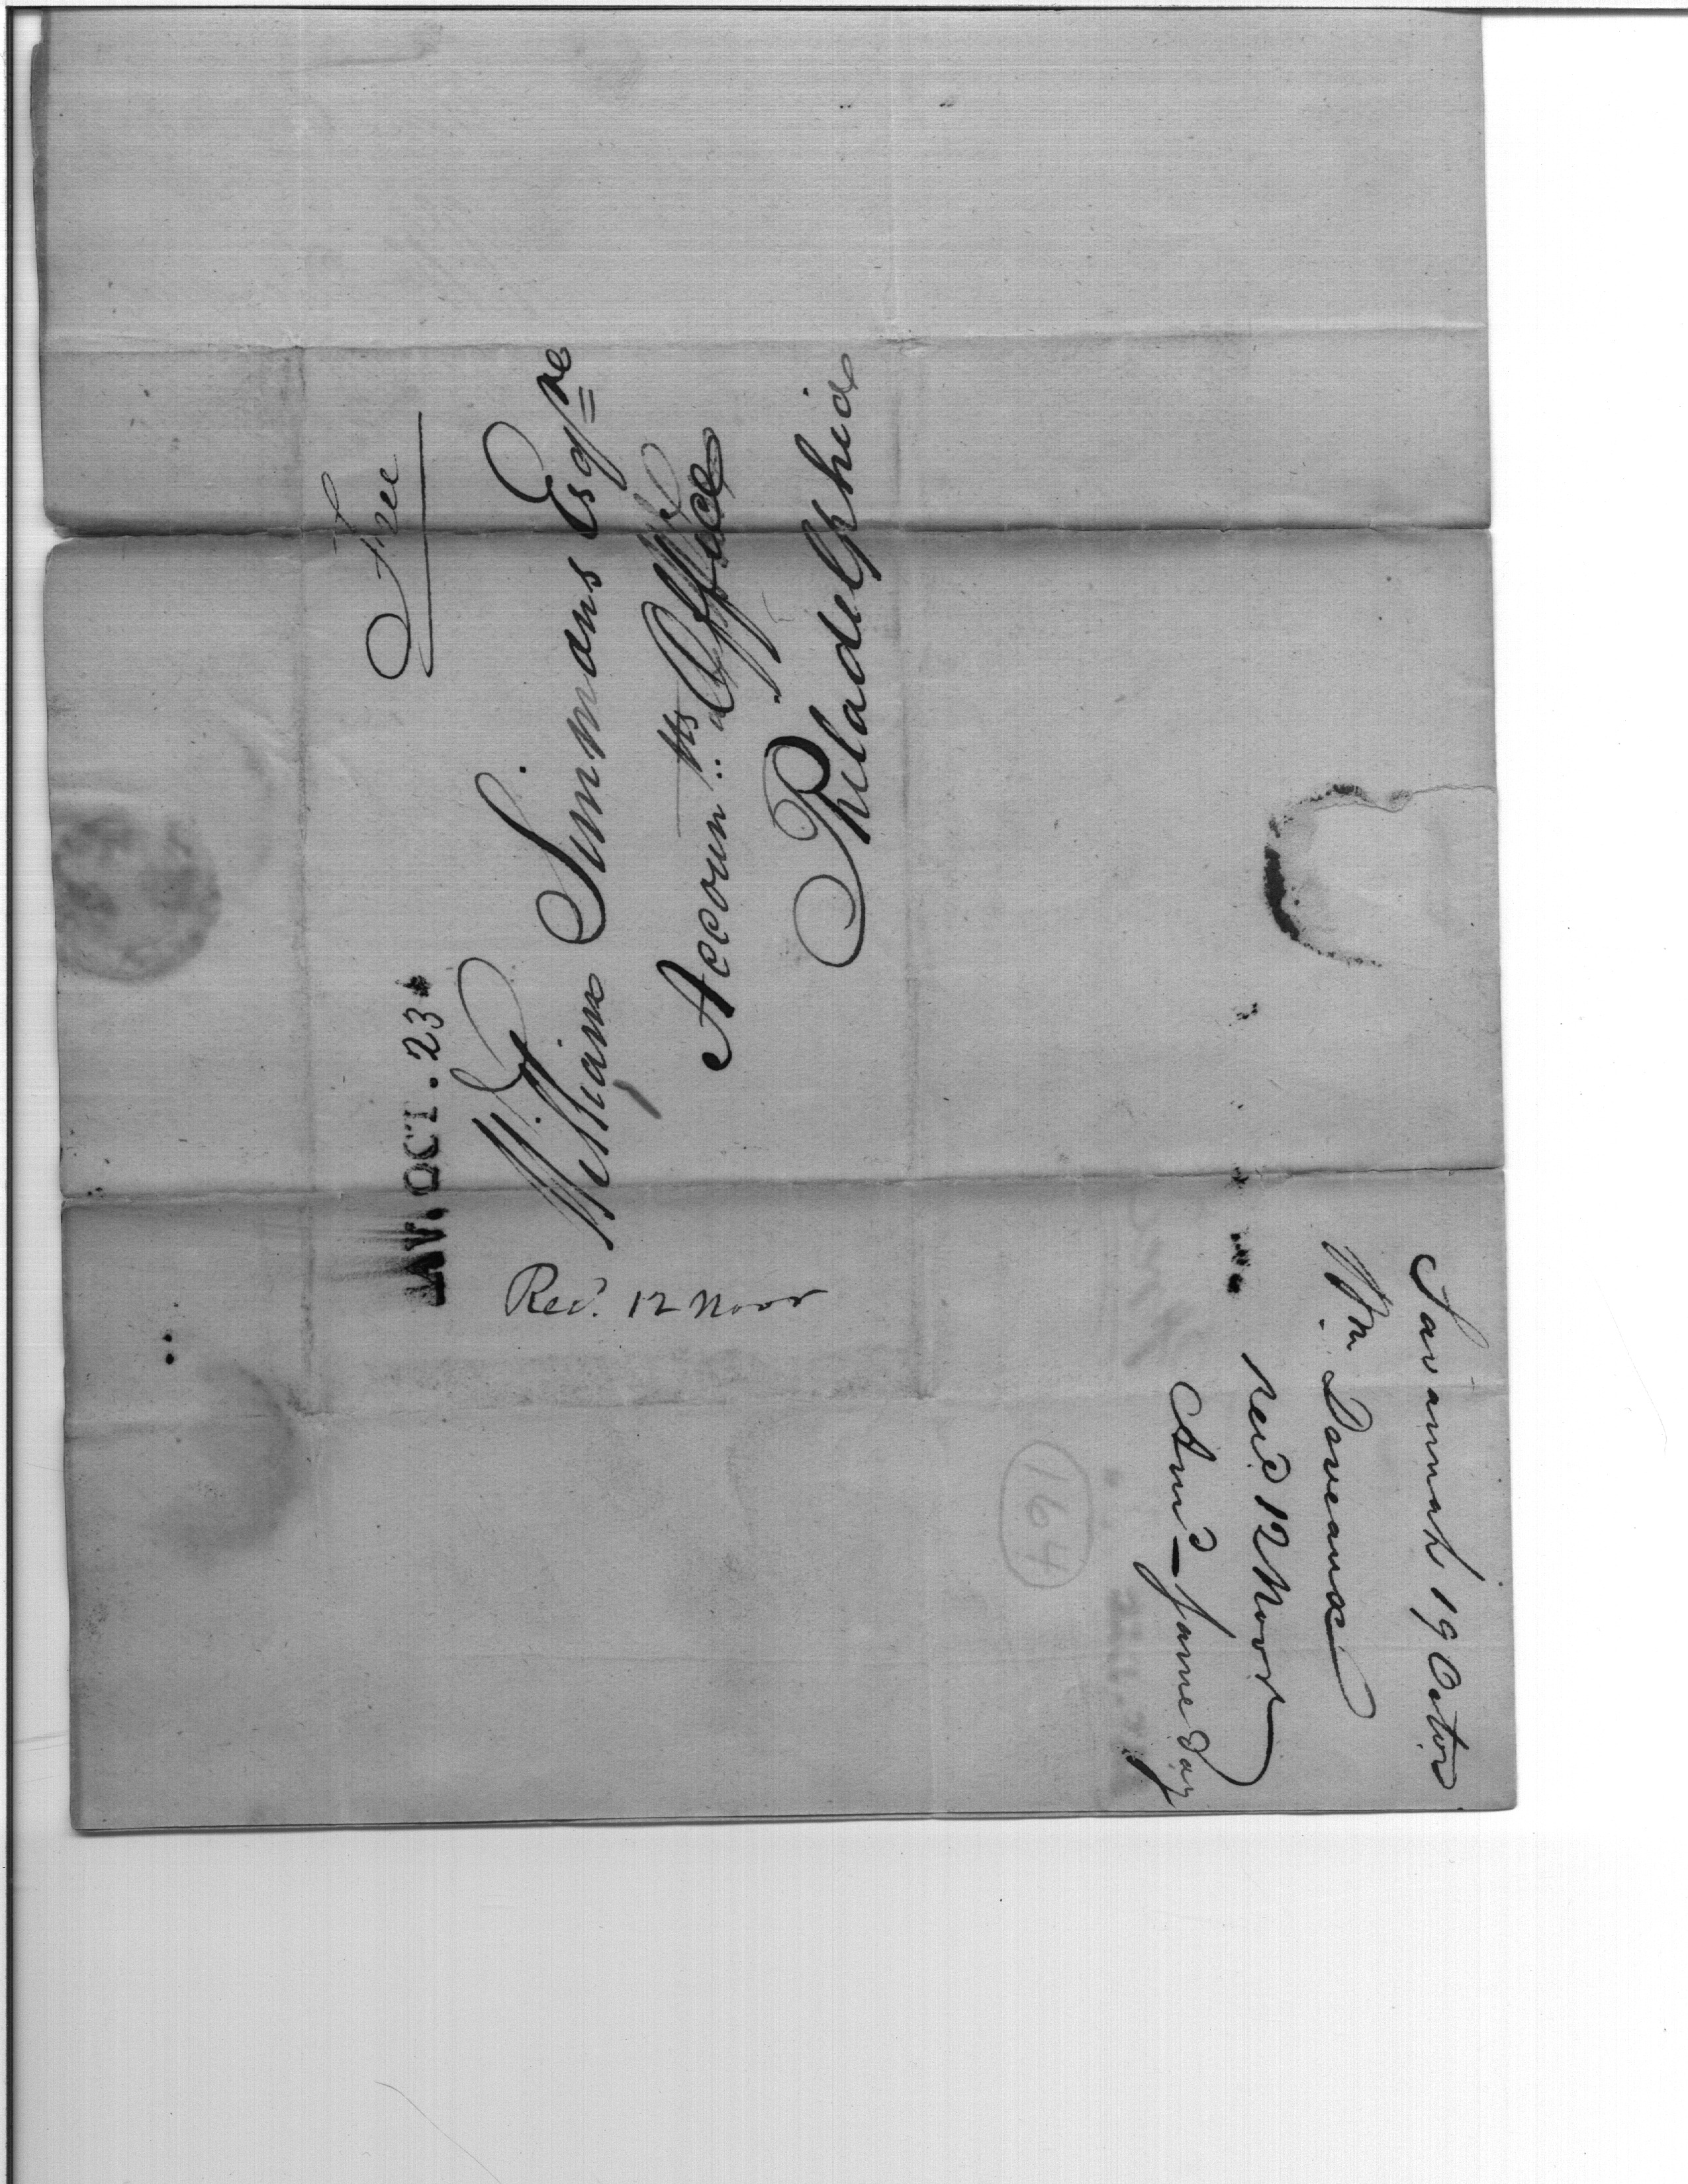 Free
AV. OCT. 23
William Simmons Esqre
Accountts Office
Philadelphia
Recd. 12 Novr
Savannah 19 Octor
Wm. Daveaux
recd 12 Novr
Answd same day
164